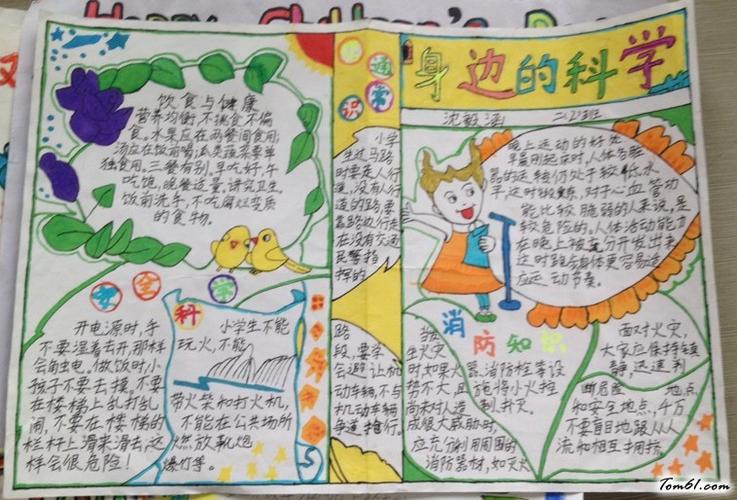 Happy Children's Da
身边的科学
沈毅涵 二(2)班
饮食与健康
营养均衡,不挑食不偏
食。水果应在两餐间食用,
汤应在饭前喝,
独食用。三餐有别,早吃好,午
吃饱,晚餐适量,讲究卫生。
饭前洗手,不吃腐烂变质
的食物。
交通
常识
小学
生过马路
时要走人行
道,没有人行
道的路要
靠路边行走
在没有交通
民警指
挥的
路
段,要学
会避让机
动车辆,不与
机动车辆
争道抢行。
晚上运动的好处
早晨刚起床时,人体各脏
器的运转仍处于较低水
平,这时锻炼,对于心血管功
能比较脆弱的人来说,是
较危险的。人体活动能力
在晚上被充分开发出来
这时跑步身体更容易适
应运动节奏。
安全
开电源时,手
不要湿着去开,那样
会触电。做饭时小
孩子不要去摸,不要
在楼梯上乱打乱
闹,不要在楼梯的
栏杆上滑来滑去,这
样会很危险!
科学
小学生不能
玩火,不能
带火柴和打火机,
不能在公共场所
燃放鞭炮
爆竹等。
消防知识
当发
生火灾
时,如果火
势不大,且
尚未对人造
成很大威胁时,
应充分利用周围的
消防器材,如灭火
器、消防栓等设
施将小火控
制、扑灭。
面对火灾,
大家应保持镇
静,迅速判
断危险地点
和安全地点,千万
不要盲目地跟从人
流和相互拥挤
Tom61.com